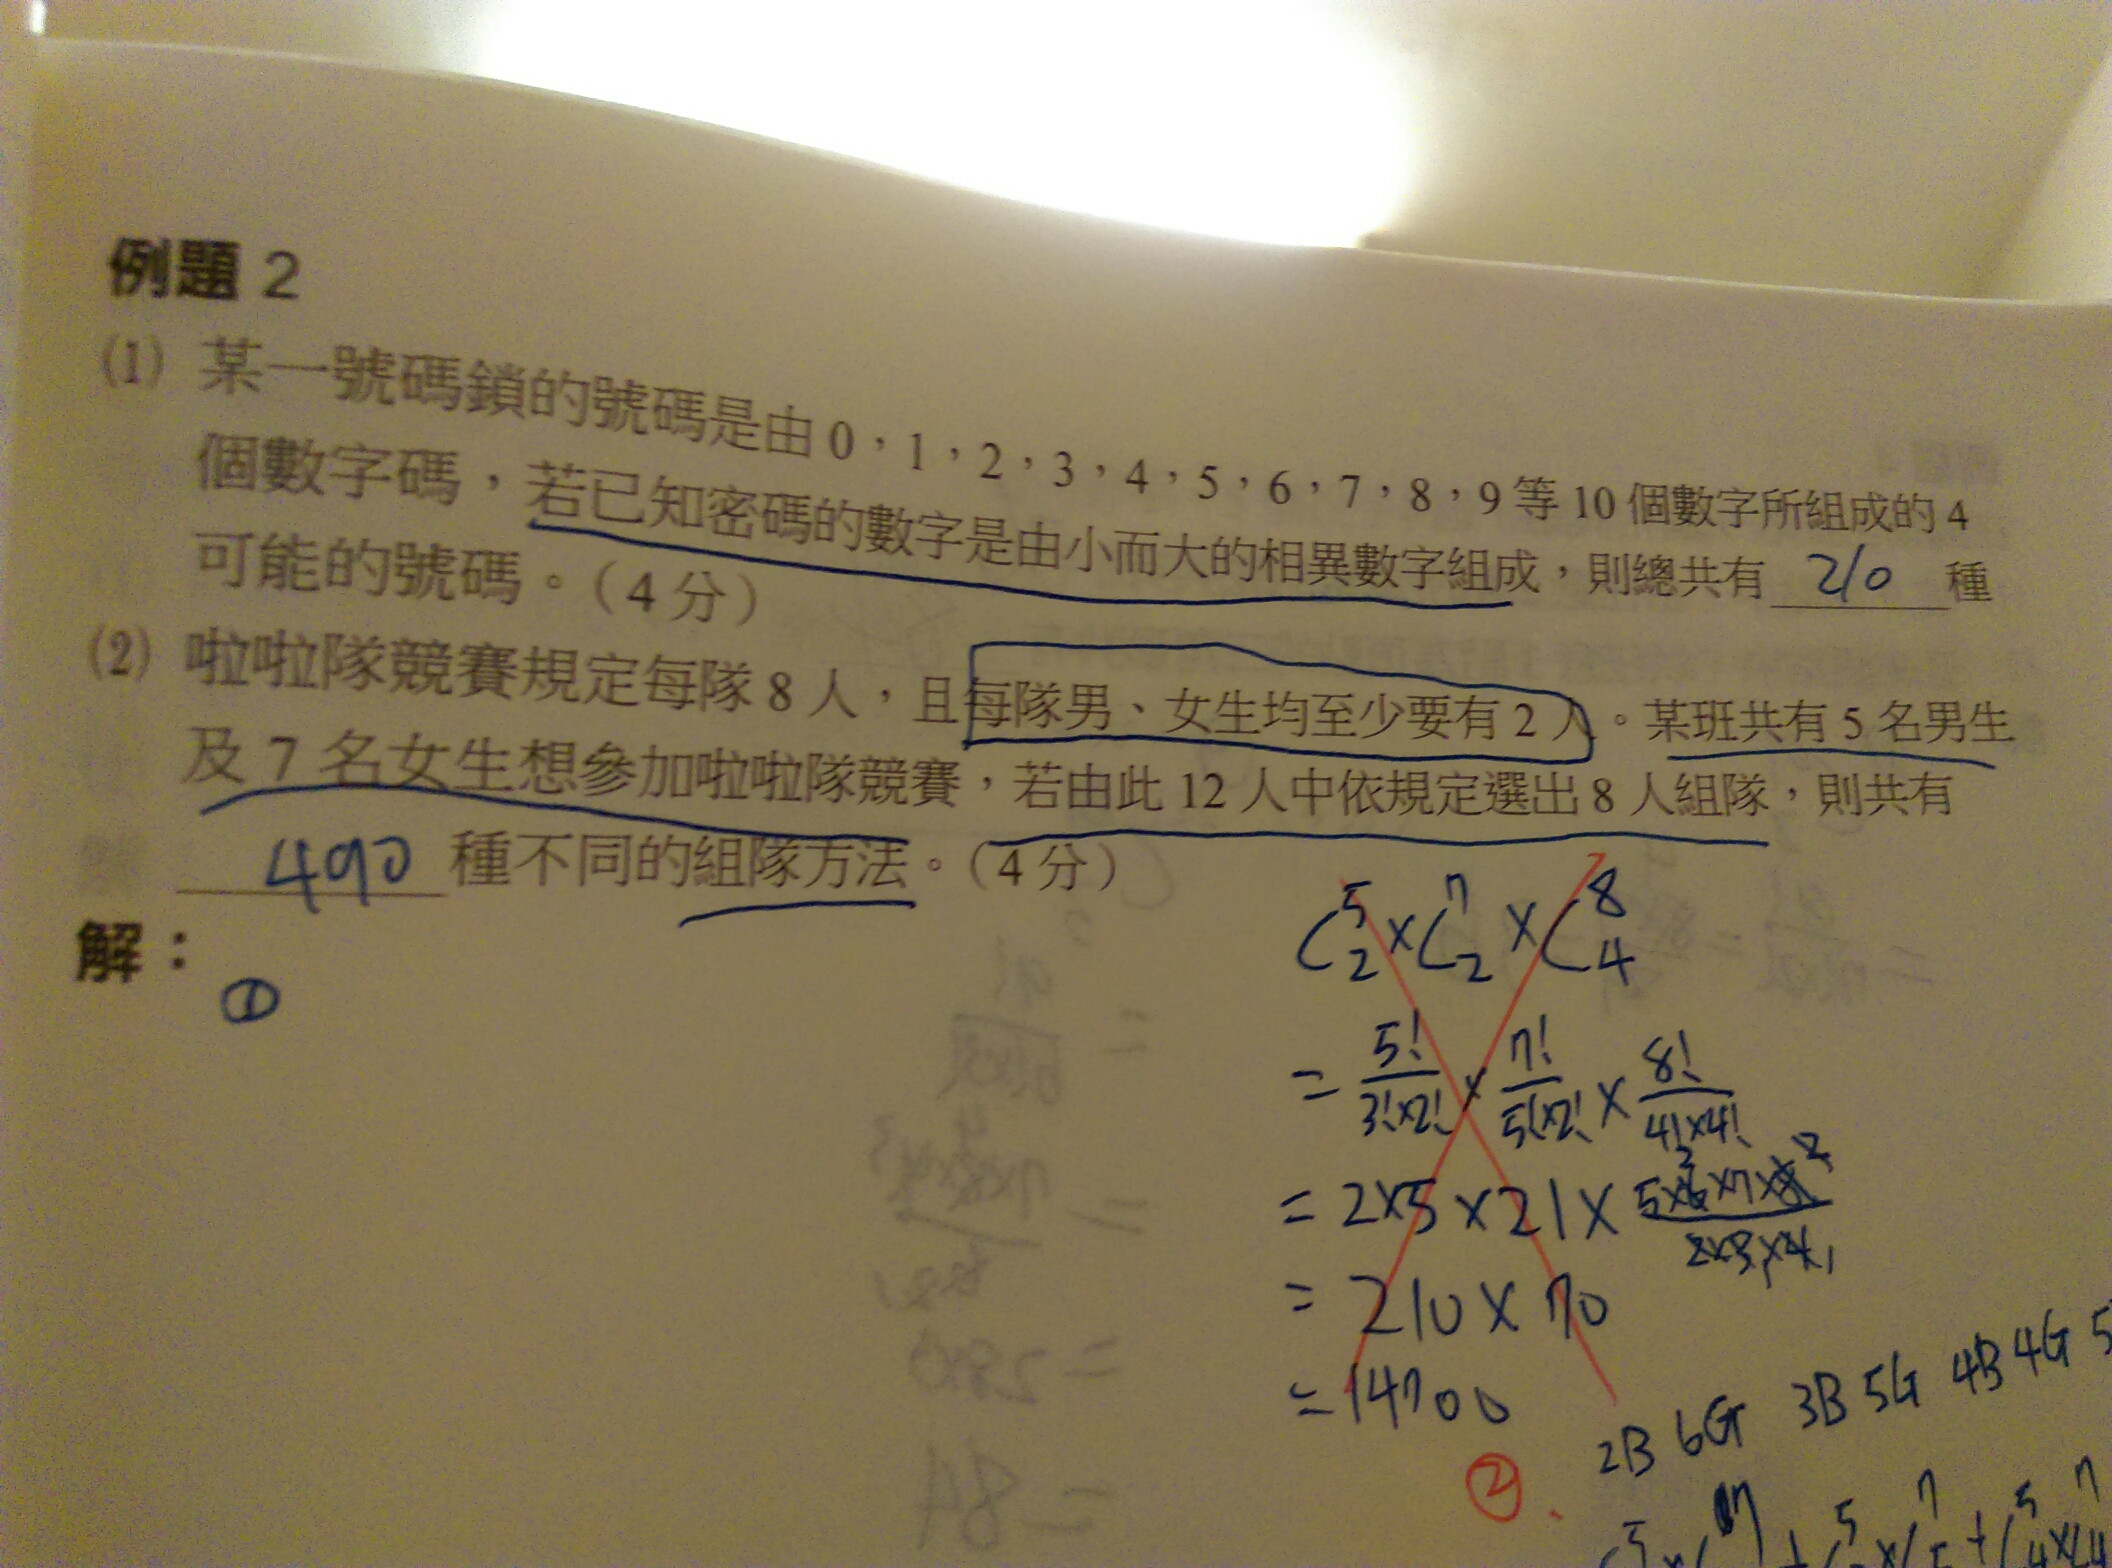 例題 2
(1) 某一號碼鎖的號碼是由 0，1，2，3，4，5，6，7，8，9 等 10 個數字所組成的 4
個數字碼，若已知密碼的數字是由小而大的相異數字組成，則總共有 210 種
可能的號碼。（4 分）
(2) 啦啦隊競賽規定每隊 8 人，且每隊男、女生均至少要有 2 人。某班共有 5 名男生
及 7 名女生想參加啦啦隊競賽，若由此 12 人中依規定選出 8 人組隊，則共有
490 種不同的組隊方法。（4 分）
解：
①
C 5 2 × C 7 2 × C 8 4
= 5!/3!×2! × 7!/5!×2! × 8!/4!×4!
= 2×5 × 21 × 5×6×7×8/2×3×4
= 210 × 70
= 14700
2B 6G 3B 5G 4B 4G 5
②.